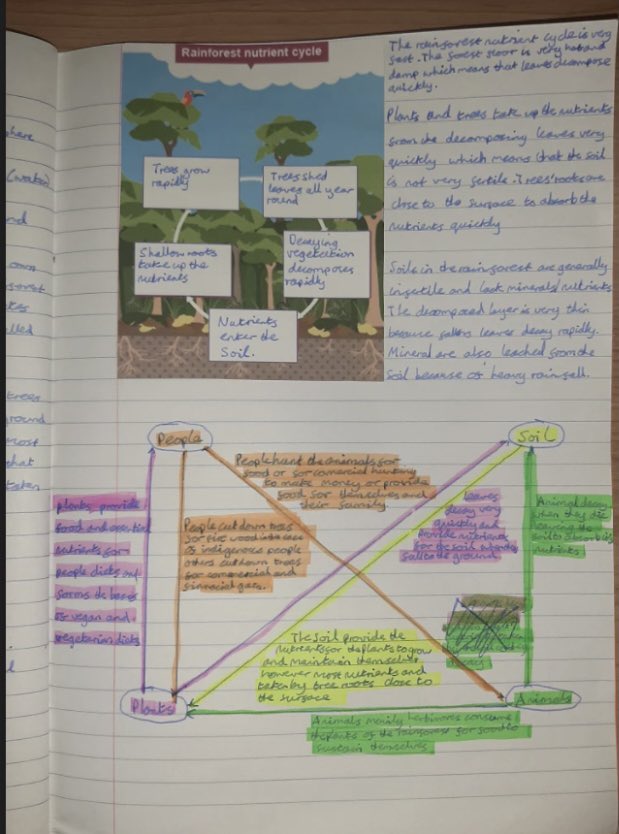 Rainforest nutrient cycle
Trees grow
rapidly
Trees shed
leaves all year
round
Shallow roots
take up the
nutrients
Decaying
vegetection
decomposes
rapidly
Nutrients
enter the
Soil.
The rainforest nutrient cycle is very
fast. The forest floor is very hot and
damp which means that leaves decompose
quickly.
Plants and trees take up the nutrients
from the decomposing leaves very
quickly which means that the soil
is not very fertile. Trees' roots are
close to the surface to absorb the
nutrients quickly
Soils in the rainforest are generally
infertile and lack minerals/nutrients
The decomposed layer is very thin
because fallen leaves decay rapidly.
Mineral are also leached from the
Soil because of heavy rainfall.
here
(water)
nd
own
lled
trees
round
most
that
taken
People
Soil
People hunt the animals for
food or for comercial hunting
to make money or provide
food for themselves and
their family
plants provide
food and
nutrients for
people diets and
forms the bases
of vegan and
vegetarian diets
People cut down trees
for fire wood
of indigenous people
others cut down trees
for comercial and
financial gain.
leaves
decay very
quickly and
provide nutrients
for the soil when
fall to the ground.
Animal decay
when they die
leaving the
soil to absorb its
nutrients
The soil provide the
nutrients for the plants to grow
and maintain themselves
however most nutrients and
taken by tree roots close to
the surface
Plants
Animals
Animals mainly herbivores consume
the plants of the rainforest for food to
sustain themselves